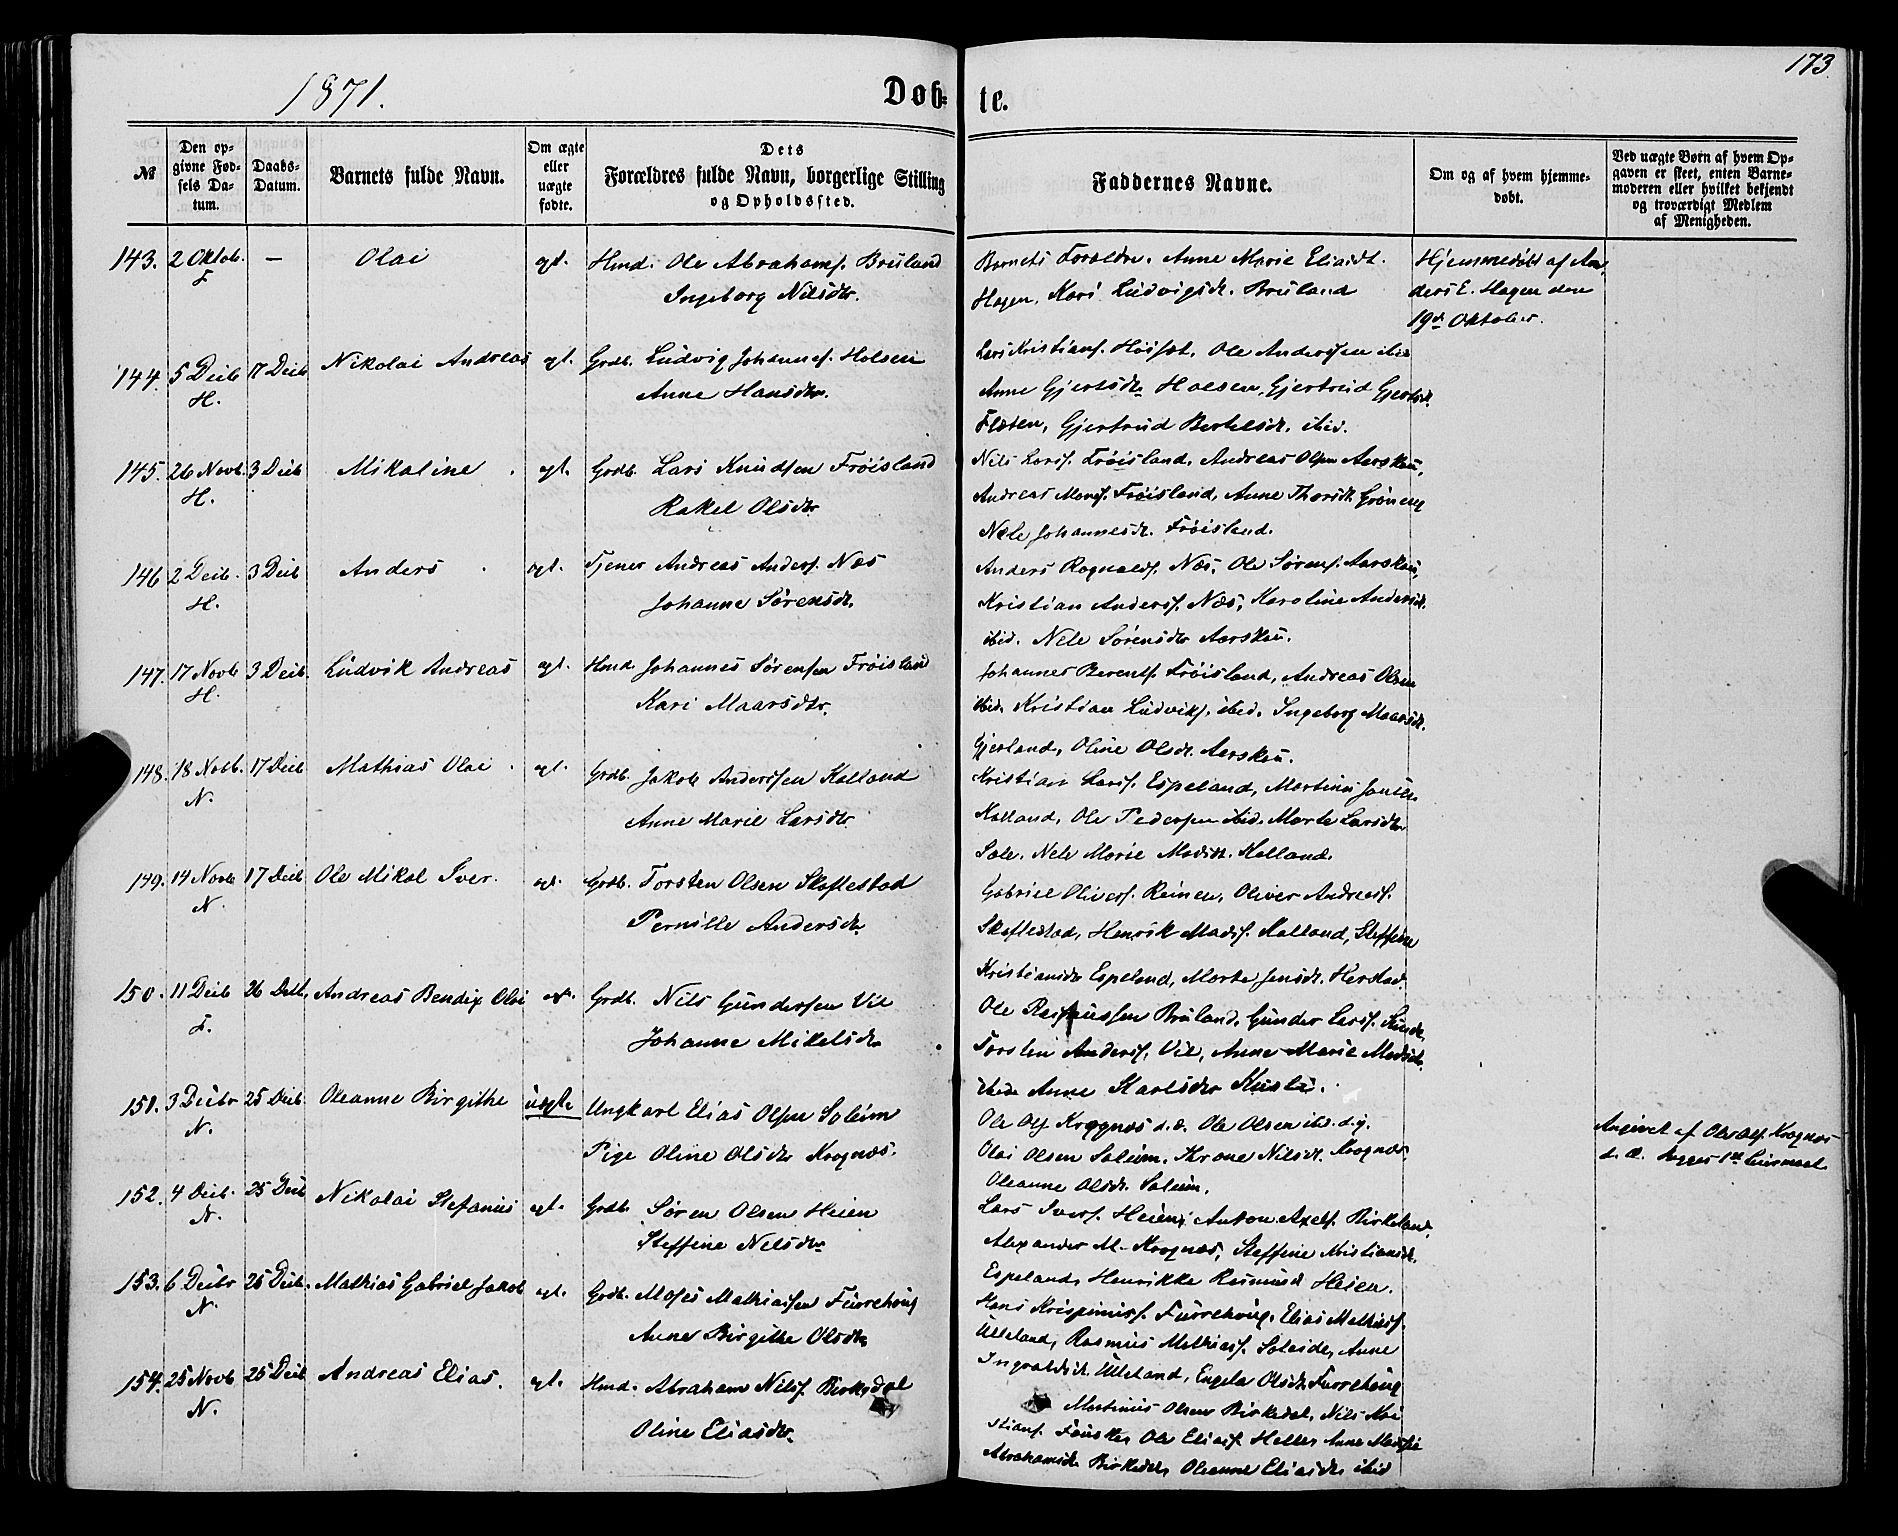 173
1871.
Døb- te.
№
Den op-
givne Fød-
sels Da-
tum.
Daabs-
Datum.
Barnets fulde Navn.
Om ægte
eller
uægte
fødte.
Dets
Forældres fulde Navn, borgerlige Stilling
og Opholdssted.
Faddernes Navne.
Om og af hvem hjemme-
døbt.
Ved uægte Børn af hvem Op-
gaven er skeet, enten Barne-
moderen eller hvilket bekjendt
og troværdigt Medlem
af Menigheden.
143. 2 Oktob. — Olai ægt. Hmd. Ole Abrahams. Bruland
F Ingeborg Nilsdtr.
Barnets Forældre. Anne Marie Eliasdt.
Hagen, Kari Ludvigsdt. Bruland
Hjemmedøbt af An
ders E. Hagen den
19de Oktober.
144. 5 Decb 17 Decb Nikolai Andreas ægt. Grdb. Ludvig Johannes. Holsen
H. Anne Hansdtr.
Lars Kristians. Høisæt, Ole Anderssen
Anne Gjertsdtr Holsen, Gjertrud Gjertsd.
Flaten, Gjertrud Bertelsdt. ibid.
145. 26 Novb. 3 Decb Mikaline ægt. Grdb. Lars Knudsen Frøisland
H. Rakel Olsdtr
Nils Larss. Frøisland, Andreas Olsen Aarskou,
Andreas Mons. Frøisland, Anne Thorsdt. Grøneng
Nele Johannesdt. Frøisland.
146 2 Decb. 3 Decb Anders ægt. Tjener Andreas Anders. Næs
H. Johanne Sørensdt.
Anders Ragnalds. Næs, Ole Sørens. Aarskou,
Kristian Anders. Næs, Karoline Andersdt.
ibid. Nele Sørensdtr Aarskou.
147. 17 Novb 3 Decb. Ludvik Andreas ægt. Hmd. Johannes Sørensen Frøisland
H. Kari Maarsdtr.
Johannes Berents. Frøisland, Andreas Olsen
ibid. Kristian Ludviks. ibid. Ingeborg Maarsdt.
Gjerland, Oline Olsdt. Aarskou.
148. 18 Novb. 17 Decb Mathias Olai ægt. Grdb. Jakob Anderssen Kalland
N. Anne Marie Larsdtr.
Kristian Larss. Espeland, Martinus
Kalland, Ole Pedersen ibid. Marte Larsdtr
Sole. Nele Marie Madsdt. Kalland.
149. 14 Novb 17 Decb Ole Mikal Iver. ægt. Grdb. Torsten Olsen Skaflestad
N. Pernille Andersdtr
Gabriel Olivers. Reinen, Oliver Andreass.
Skaflestad, Henrik Mads. Kalland, Steffine
Kristiansdtr Espeland, Marte Jensdt. Herstad.
150. 11 Decb 26 Decb. Andreas Bendix Olai ægt. Grdb. Nils Gundersen Vie
F. Johanne Mikelsdtr
Ole Rasmussen Bruland, Gunder Larss. Kusle,
Torsten Anderss. Vie, Anne Marie Madsdtr.
ibid. Anne Karlsdtr Kusle.
151. 3 Decbr 25 Decb. Oleanne Birgithe uægte Ungkarl Elias Olsen Soleim
N. Pige Oline Olsdtr Krognæs.
Ole Ols. Krognæs d.æ. Ole Olsen ibid. d.y.
Olai Olsen Soleim, Nilsdt. Krognæs.
Oleanne Olsdt. Soleim.
Angivet af Ole Ols. Krognæs
d. æ. Begges 1ste Leiermaal.
152. 4 Decb. 25 Decb Nikolai Stefanus ægt. Grdb. Søren Olsen Heien
N. Steffine Nilsdtr
Lars Ivers. Heien, Anton Axels. Birkeland,
Alexander M. Krognæs, Steffine Kristiansdt.
Espeland, Henrikke Rasmusdt Heien.
153. 6 Decbr 25 Decb. Mathias Gabriel Jakob ægt. Grdb. Moses Mathiassen Furrehoug
N. Anne Birgithe Olsdtr
Hans Krispinuss. Furrehoug, Elias Mathiass.
Ulleland, Rasmus Mathiass. Soleide, Anne
Ingvaldsdt. Ulleland, Engela Olsdt. Furrehoug
154. 25 Novb 25 Decb Andreas Elias. ægt. Hmd. Abraham Nilss. Birkedal
N. Oline Eliasdtr.
Martinus Olsen Birkedal, Nils Kri
stians. Fousker Ole Eliass. Heller Anne
Abrahamsdt. Birkedal, Oleanne Eliasdt. ibid